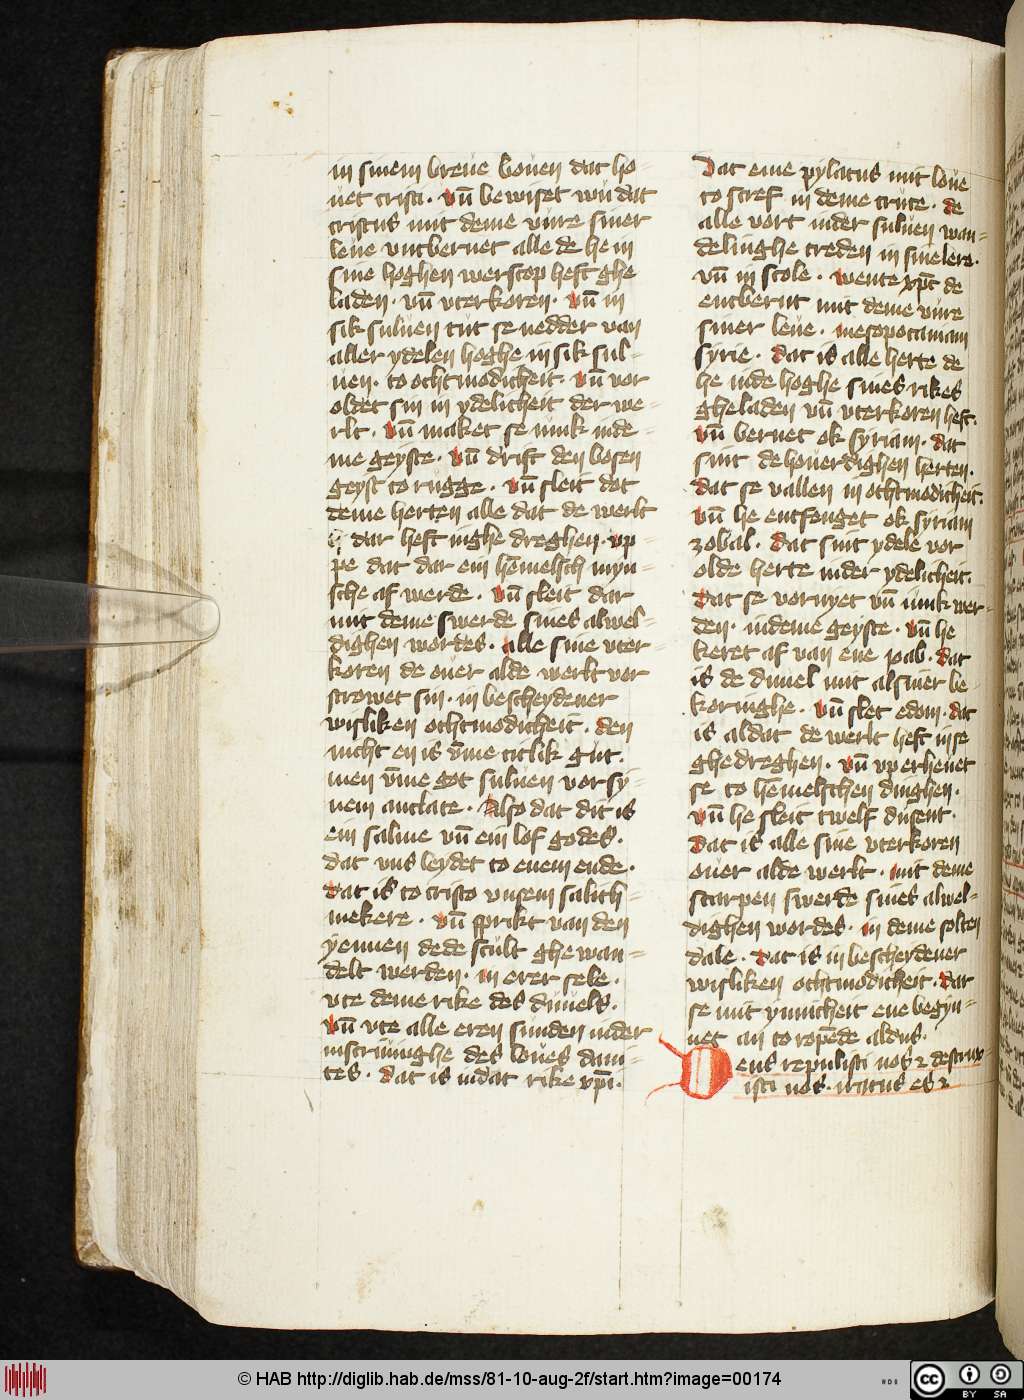 in sinem breue bouen dat ho-
uet cristi. vn̄ bewiset wu dat
cristus mit deme vure siner
leue vntbernet alle de he in
sine hoghen werscop heft ghe
laden. vn̄ vterkoren. vn̄ in
sik suluen tut se nedder van
aller ydelen hoghe in sik sul-
uen. to ochtmodicheit. vn̄ vor
oldet sin in ydelicheit der we-
rlt. vn̄ maket se iunk inde-
me geyste. vn̄ drift den bosen
geyst to rugge. vn̄ sleit dot
deme herten alle dat de werlt
dar heft inghe dreghen. vp
pe dat dar ein hemelsch myn-
sche af werde. vn̄ sleit dar
mit deme swerde sines alwel-
dighen wordes. alle sine vter
koren de ouer alde werlt vor
strowet sin. in bescheydener
wisliken ochtmodicheit. den
nicht en is vm̄e titlik gut.
men vm̄e got suluen vor sy-
nem antlate. Also dat dit is
ein salme vn̄ ein lof godes.
dat vns leydet to euem ende.
dat is to cristo vnsem salich-
mekere. vn̄ sprikt van den
yennen dede scult ghe wan-
delt werden. in erer sele.
vte deme rike des duuels.
vn̄ vte alle eren sunden inder
inscriuinghe des loues daui-
tes. dat is indat rike xp̄i.
Dat eme pylatus mit loue
to scref in deme cruce. de
alle vort inder suluen wan-
delinghe treden in sine lere.
vn̄ in scole. wente xp̄c de
entbernt mit deme vure
siner leue. mesopotamiam
syrie. dat is alle herte de
he inde hoghe sines rikes
gheladen vn̄ vterkoren heft.
vn̄ bernet ok syriam. dat
sint de houerdighen herten.
dat se vallen in ochtmodicheit.
vn̄ he entfenget ok syriam
zobal. dat sint ydele vor
olde herte inder ydelicheit.
dat se vornyet vn̄ iunk wer-
den. indeme geyste. vn̄ he
keret af van ene ioab. dat
is de duuel mit al siner be-
koringhe. vn̄ slet edom. dat
is aldat de werlt heft in se
ghedreghen. vn̄ vp erheuet
se to hemelschen dinghen.
vn̄ he sleit twelf dusent.
dat is alle sine vterkoren
ouer alde werlt. mit deme
scarpen swerde sines alwel-
dighen wordes. in deme solten
dale. dat is in bescheydener
wisliken ochtmodicheit. dar
se mit ynnicheit ene begyn-
net an to ropēde aldus.
Deus repulisti nos ⁊ destrux
isti nos. iratus es ⁊
© HAB http://diglib.hab.de/mss/81-10-aug-2f/start.htm?image=00174
cc BY SA